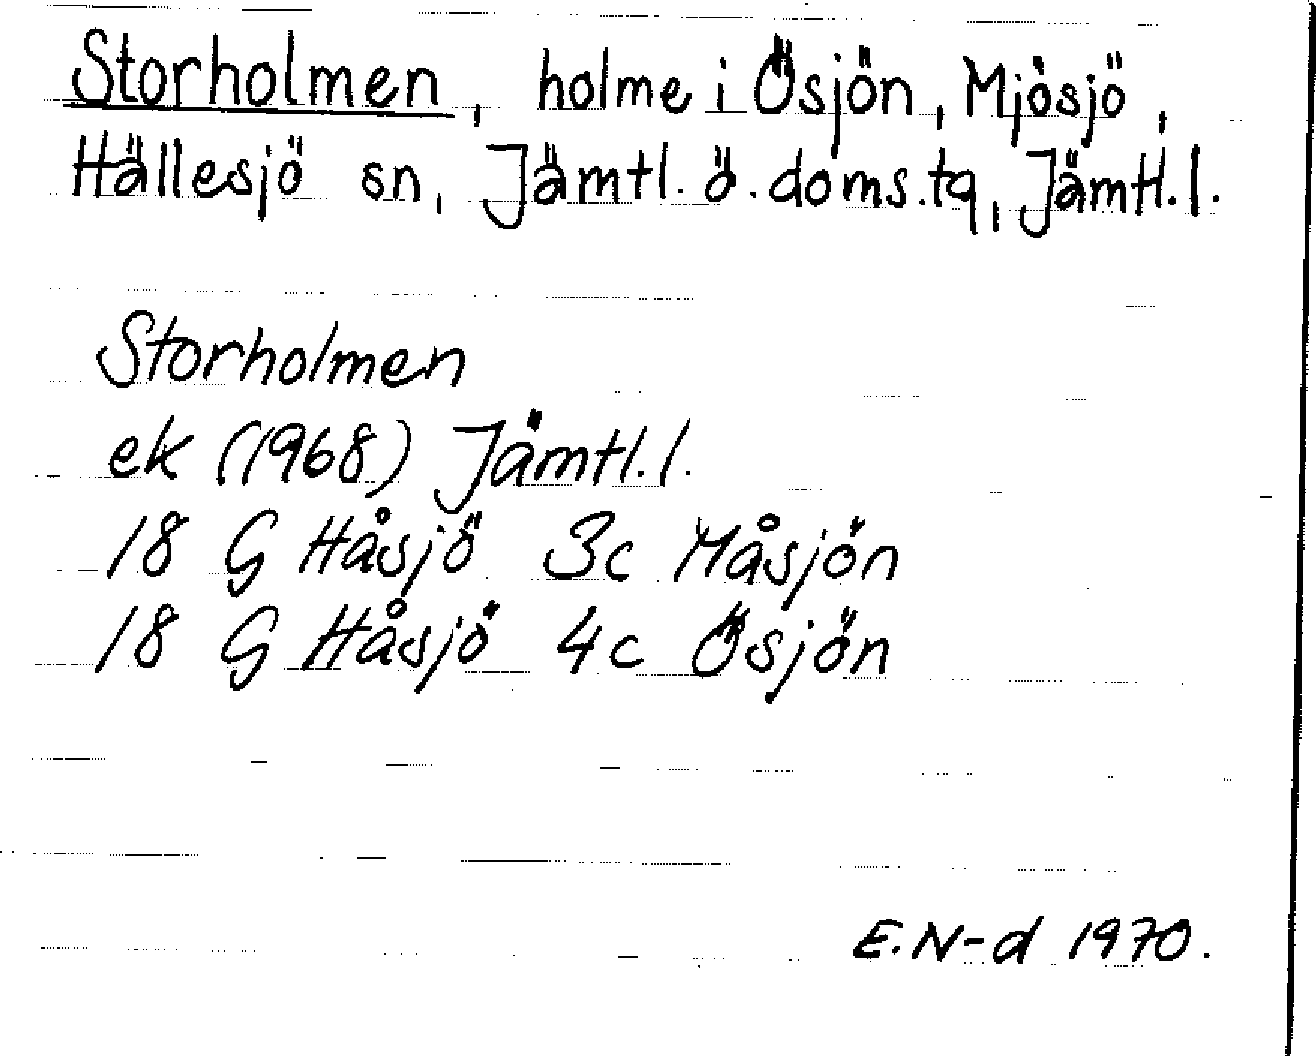 Storholmen, holme i Ösjön, Mjösjö,
Hällesjö sn, Jämtl. ö. doms.tq, Jämtl.l.
Storholmen
ek (1968) Jämtl.l.
18 G Håsjö 3c Måsjön
18 G Håsjö 4c Ösjön
E.N-d 1970.